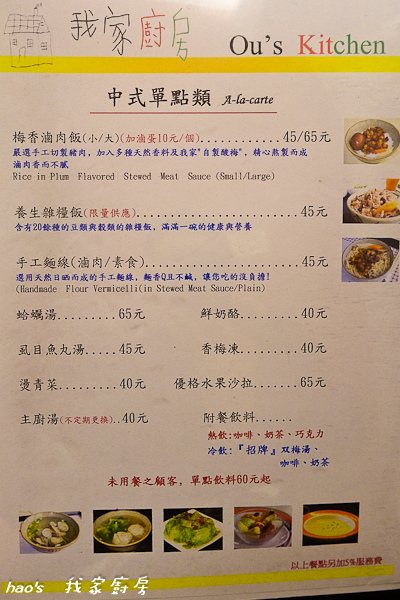 我家廚房
Ou's Kitchen
中式單點類 A-la-carte
梅香滷肉飯(小/大)(加滷蛋10元/個).............45/65元
嚴選手工切製豬肉，加入多種天然香料及我家"自製酸梅"，精心熬製而成
滷肉香而不膩
Rice in Plum Flavored Stewed Meat Sauce (Small/Large)
養生雜糧飯(限量供應).......................45元
含有20餘種的豆類與穀類的雜糧飯，滿滿一碗的健康與營養
手工麵線(滷肉/素食)......................45元
選用天然日晒而成的手工麵線，麵香Q且不鹹，讓您吃的沒負擔!
(Handmade Flour Vermicelli(in Stewed Meat Sauce/Plain)
蛤蠣湯........65元
鮮奶酪........40元
虱目魚丸湯.....45元
香梅凍........40元
燙青菜........40元
優格水果沙拉.......65元
主廚湯(不定期更換)..40元
附餐飲料......
熱飲:咖啡、奶茶、巧克力
冷飲:『招牌』双梅湯、
咖啡、奶茶
未用餐之顧客，單點飲料60元起
以上餐點另加5%服務費
hao's 我家廚房